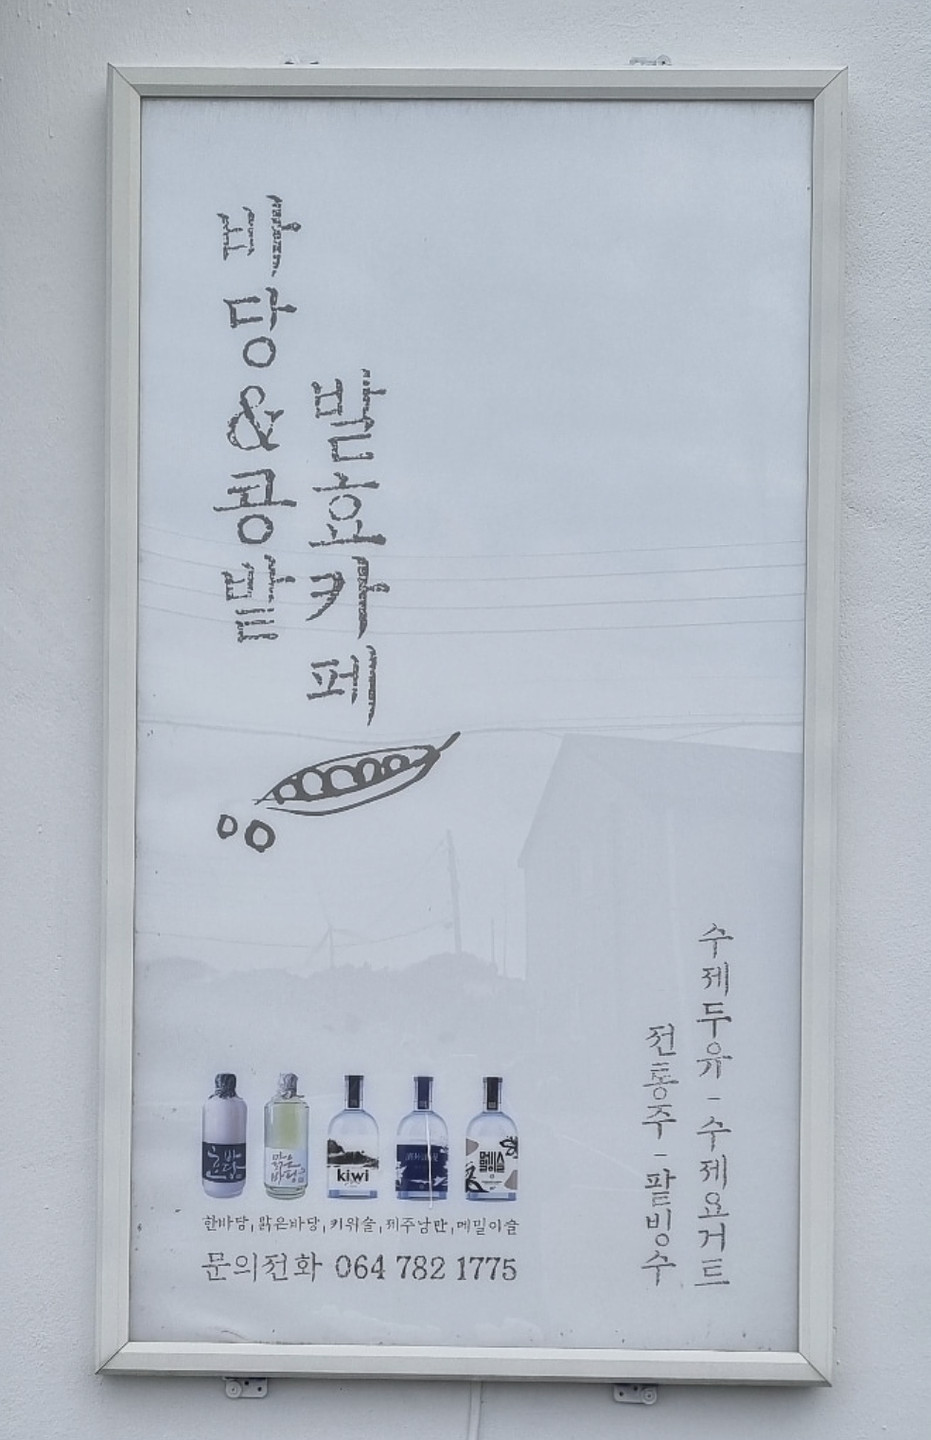 바당&콩밭
발효카페
수제두유 - 수제요거트
전통주 - 팥빙수
한바당
맑은바당
kiwi
한바당, 맑은바당, 키위술, 제주낭만, 메밀이슬
문의전화 064 782 1775